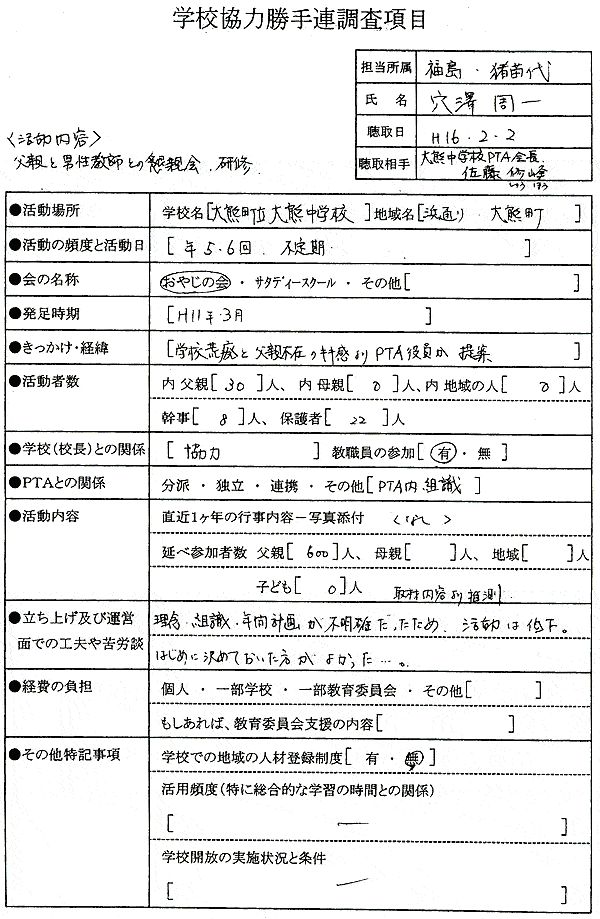 学校協力勝手連調査項目
担当所属 福島・猪苗代
氏名 穴澤周一
聴取日 H16.2.2
聴取相手 大熊中学校PTA会長
佐藤
<活動内容>
父親と男性教師との懇親会、研修
●活動場所 学校名[大熊町立大熊中学校]地域名[浜通り・大熊町]
●活動の頻度と活動日 [年5・6回、不定期]
●会の名称 おやじの会・サタディースクール・その他[ ]
●発足時期 [H11年・3月]
●きっかけ・経緯 [学校荒廃と父親不在の キ感よりPTA役員が 提案]
●活動者数 内 父親[30]人、内 母親[0]人、内 地域の人[0]人
幹事[8]人、保護者[22]人
●学校(校長)との関係 [協力] 教職員の参加[有・無]
●PTAとの関係 分派・独立・連携・その他[PTA内 組識]
●活動内容 直近1ヶ年の行事内容-写真添付 <なし>
延べ参加者数 父親[600]人、母親[ ]人、地域[ ]人
子ども[0]人 取材内容より推測
●立ち上げ及び運営 理念・組識・年間計画が不明確だったため、活動は低下。
面での工夫や苦労談 はじめに決めておいた方がよかった…。
●経費の負担 個人・一部学校・一部教育委員会・その他[ ]
もしあれば、教育委員会支援の内容[ ]
●その他特記事項 学校での地域の人材登録制度[有・無]
活用頻度(特に総合的な学習の時間との関係)
[ ー ]
学校開放の実施状況と条件
[ ー ]